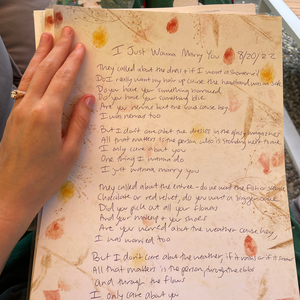 I Just Wanna Marry You 8/20/22
They called about the dress + if I want a shower or
Do I really want my hair up cause the
Do you have your something borrowed
Do you have your something blue
Are you nervous but the love cause hey
I was nervous too
But I don't care about the dresses in the glossy magazines
All that matters is the person who is standing next to me
I only care about you
One thing I wanna do
I just wanna marry you
They called about the cake - do we want the
Chocolate or red velvet, do you want a bigger
Did you pick out all your flowers
And your makeup + your shoes
Are you worried about the weather cause hey,
I was worried too
But I don't care about the weather, if it rains or if it snows
All that matters is the person, through the
and through the
I only care about you